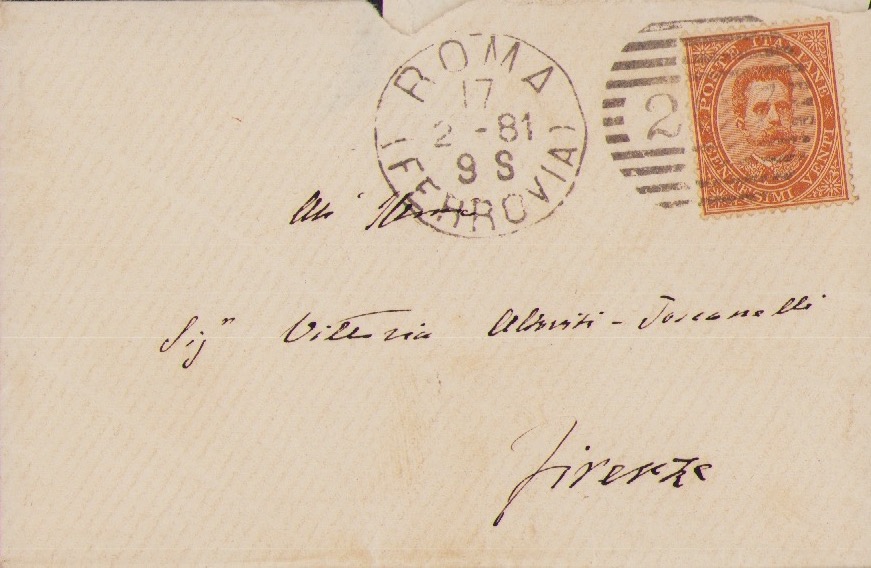 ROMA
17
2 - 81
9 S
(FERROVIA)
2
POSTE ITALIANE
CENTESIMI VENTI
All'
Sigra Vittoria Altoviti - Toscanelli
Firenze